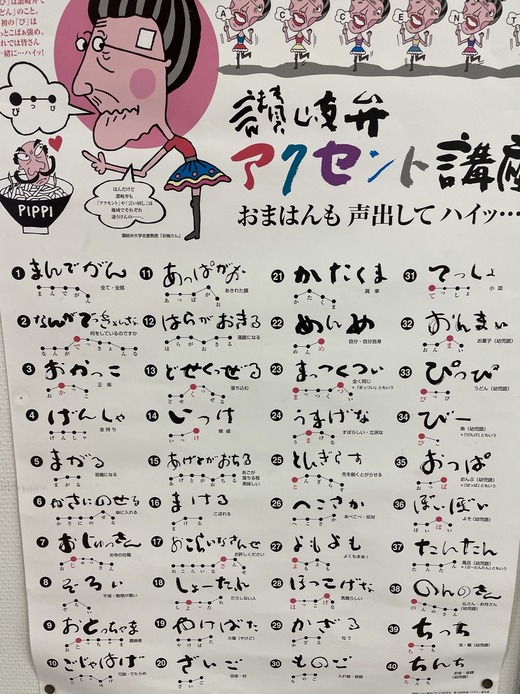 び」は讃岐弁で
どん」のこと。
初の「ぴ」は
っとこぁ強め。
れでは皆さん
一緒に…ハイッ!
ぴっぴ
PIPPI
ACCENT
ほんだけど
讃岐弁も
「アクセント」や「言い回し」は
地域でそれぞれ
違うけんの――。
讃岐弁大学名誉教授「お梅さん」
讃岐弁
アクセント講座
おまはんも 声出して ハイッ…
1 まんでがん
全て・全部
まんでがん
2 なんがで
何をしているのですか
3 おかっこ
正座
おかっこ
4 げんしゃ
金持ち
げんしゃ
5 まがる
邪魔になる
まがる
6 かさにのせる
傘に入れる
かさにのせる
7 おじゅっさん
お寺の住職
8 ぞろい
不潔・整理が悪い
ぞろい
9 おとっちゃま
臆病者
おとっちゃま
10 ごじゃはげ
冗談・でたらめ
11 あっぱがお
あきれた顔
あっぱがお
12 はらがおきる
満腹になる
はらがおきる
13 どせくっぜる
落ち込む
14 いっけ
親戚
いっけ
15 あげとがおちる
あごが
落ちる程
美味しい
16 まける
こぼれる
まける
17 おこらいなさんせ
お許しください
18 しょーたれ
だらしない人
しょーたれ
19 やけばた
火傷(やけど)
やけばた
20 ざいご
田舎・村
ざいご
21 かたくま
肩車
かたくま
22 めんめ
自分・自分自身
めんめ
23 まっつくつい
全く同じ
*「まっつい」ともいう
まっつくつい
24 うまげな
すばらしい・立派な
うまげな
25 とんぎらす
先を鋭くとがらせる
とんぎらす
26 へこさか
あべこべ・反対
へこさか
27 よもよも
よくもまあ!
よもよも
28 ほっこげな
馬鹿らしい
ほっこげな
29 かざる
匂う
かざる
30 ものご
入れ物・容器
ものご
31 てっしょ
小皿
てっしょ
32 おんまい
お菓子(幼児語)
おんまい
33 ぴっぴ
うどん(幼児語)
ぴっぴ
34 びー
魚(幼児語)
*「びび」ともいう
びー
35 おっぱ
おんぶ(幼児語)
*「ばっぱ」ともいう
おっぱ
36 ぼいぼい
よそ(幼児語)
37 たんたん
風呂(幼児語)
*「ぶーたんたん」ともいう
たんたん
38 ののさん
仏さん・お月さん
(幼児語)
39 ちっち
虫・蝶(幼児語)
ちっち
40 ちんち
(幼児語)
ちんち